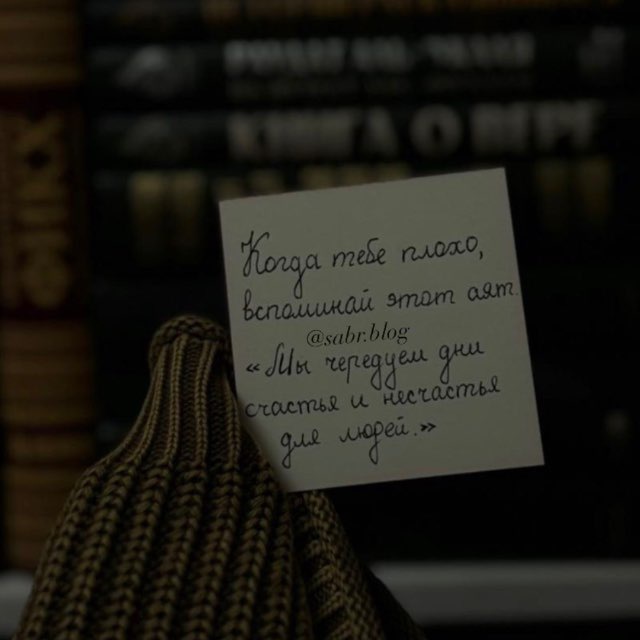 КНИГА О ВЕРЕ
Когда тебе плохо,
вспоминай этот аят
@sabr.blog
«Мы чередуем дни
счастья и несчастья
для людей.»